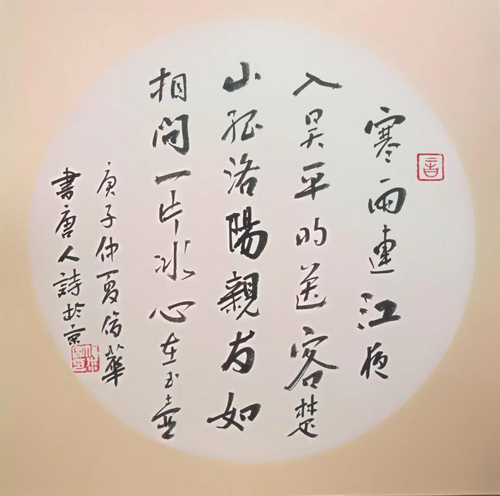 寒雨連江夜
入吴平明送客楚
山孤洛陽親友如
相問一片冰心在玉壺
庚子仲夏華
書唐人詩於京